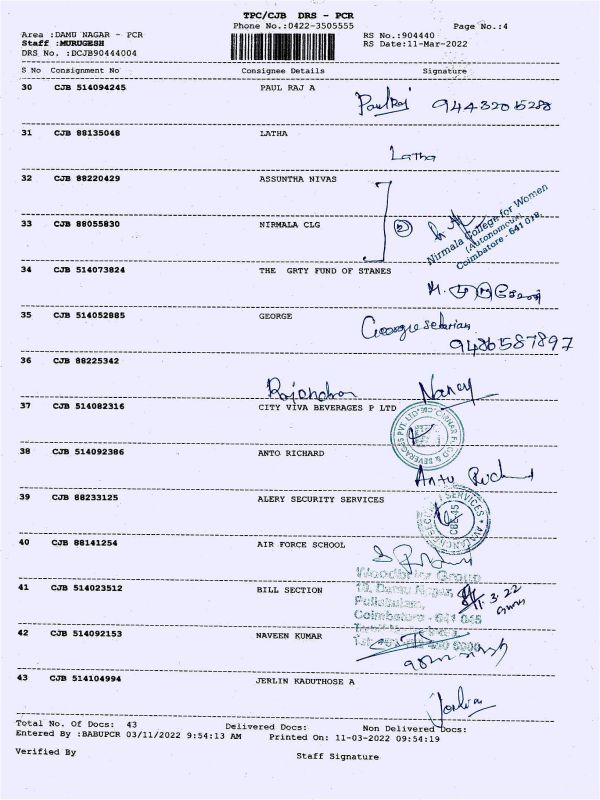 TPC/CJB DRS - PCR
Phone No.:0422-3505555
Page No.:4
Area :DAMU NAGAR - PCR
RS No.:904440
Staff :MURUGESH
RS Date:11-Mar-2022
DRS No. :DCJB90444004
S No Consignment No Consignee Details Signature
30 CJB 514094245 PAUL RAJ A
PaulRaj 9443205288
31 CJB 88135048 LATHA
Latha
32 CJB 88220429 ASSUNTHA NIVAS
33 CJB 88055830 NIRMALA CLG
Nirmala College for Women
(Autonomous)
Coimbatore - 641 018.
34 CJB 514073824 THE GRTY FUND OF STANES
35 CJB 514052885 GEORGE
9486587897
36 CJB 88225342
Rajendran Nancy
37 CJB 514082316 CITY VIVA BEVERAGES P LTD
38 CJB 514092386 ANTO RICHARD
39 CJB 88233125 ALERY SECURITY SERVICES
40 CJB 88141254 AIR FORCE SCHOOL
Woodbriar Group
41 CJB 514023512 BILL SECTION
Damu Nagar,
Coimbatore - 641 045
42 CJB 514092153 NAVEEN KUMAR
43 CJB 514104994 JERLIN KADUTHOSE A
Total No. Of Docs: 43 Delivered Docs: Non Delivered Docs:
Entered By :BABUPCR 03/11/2022 9:54:13 AM Printed On: 11-03-2022 09:54:19
Verified By Staff Signature